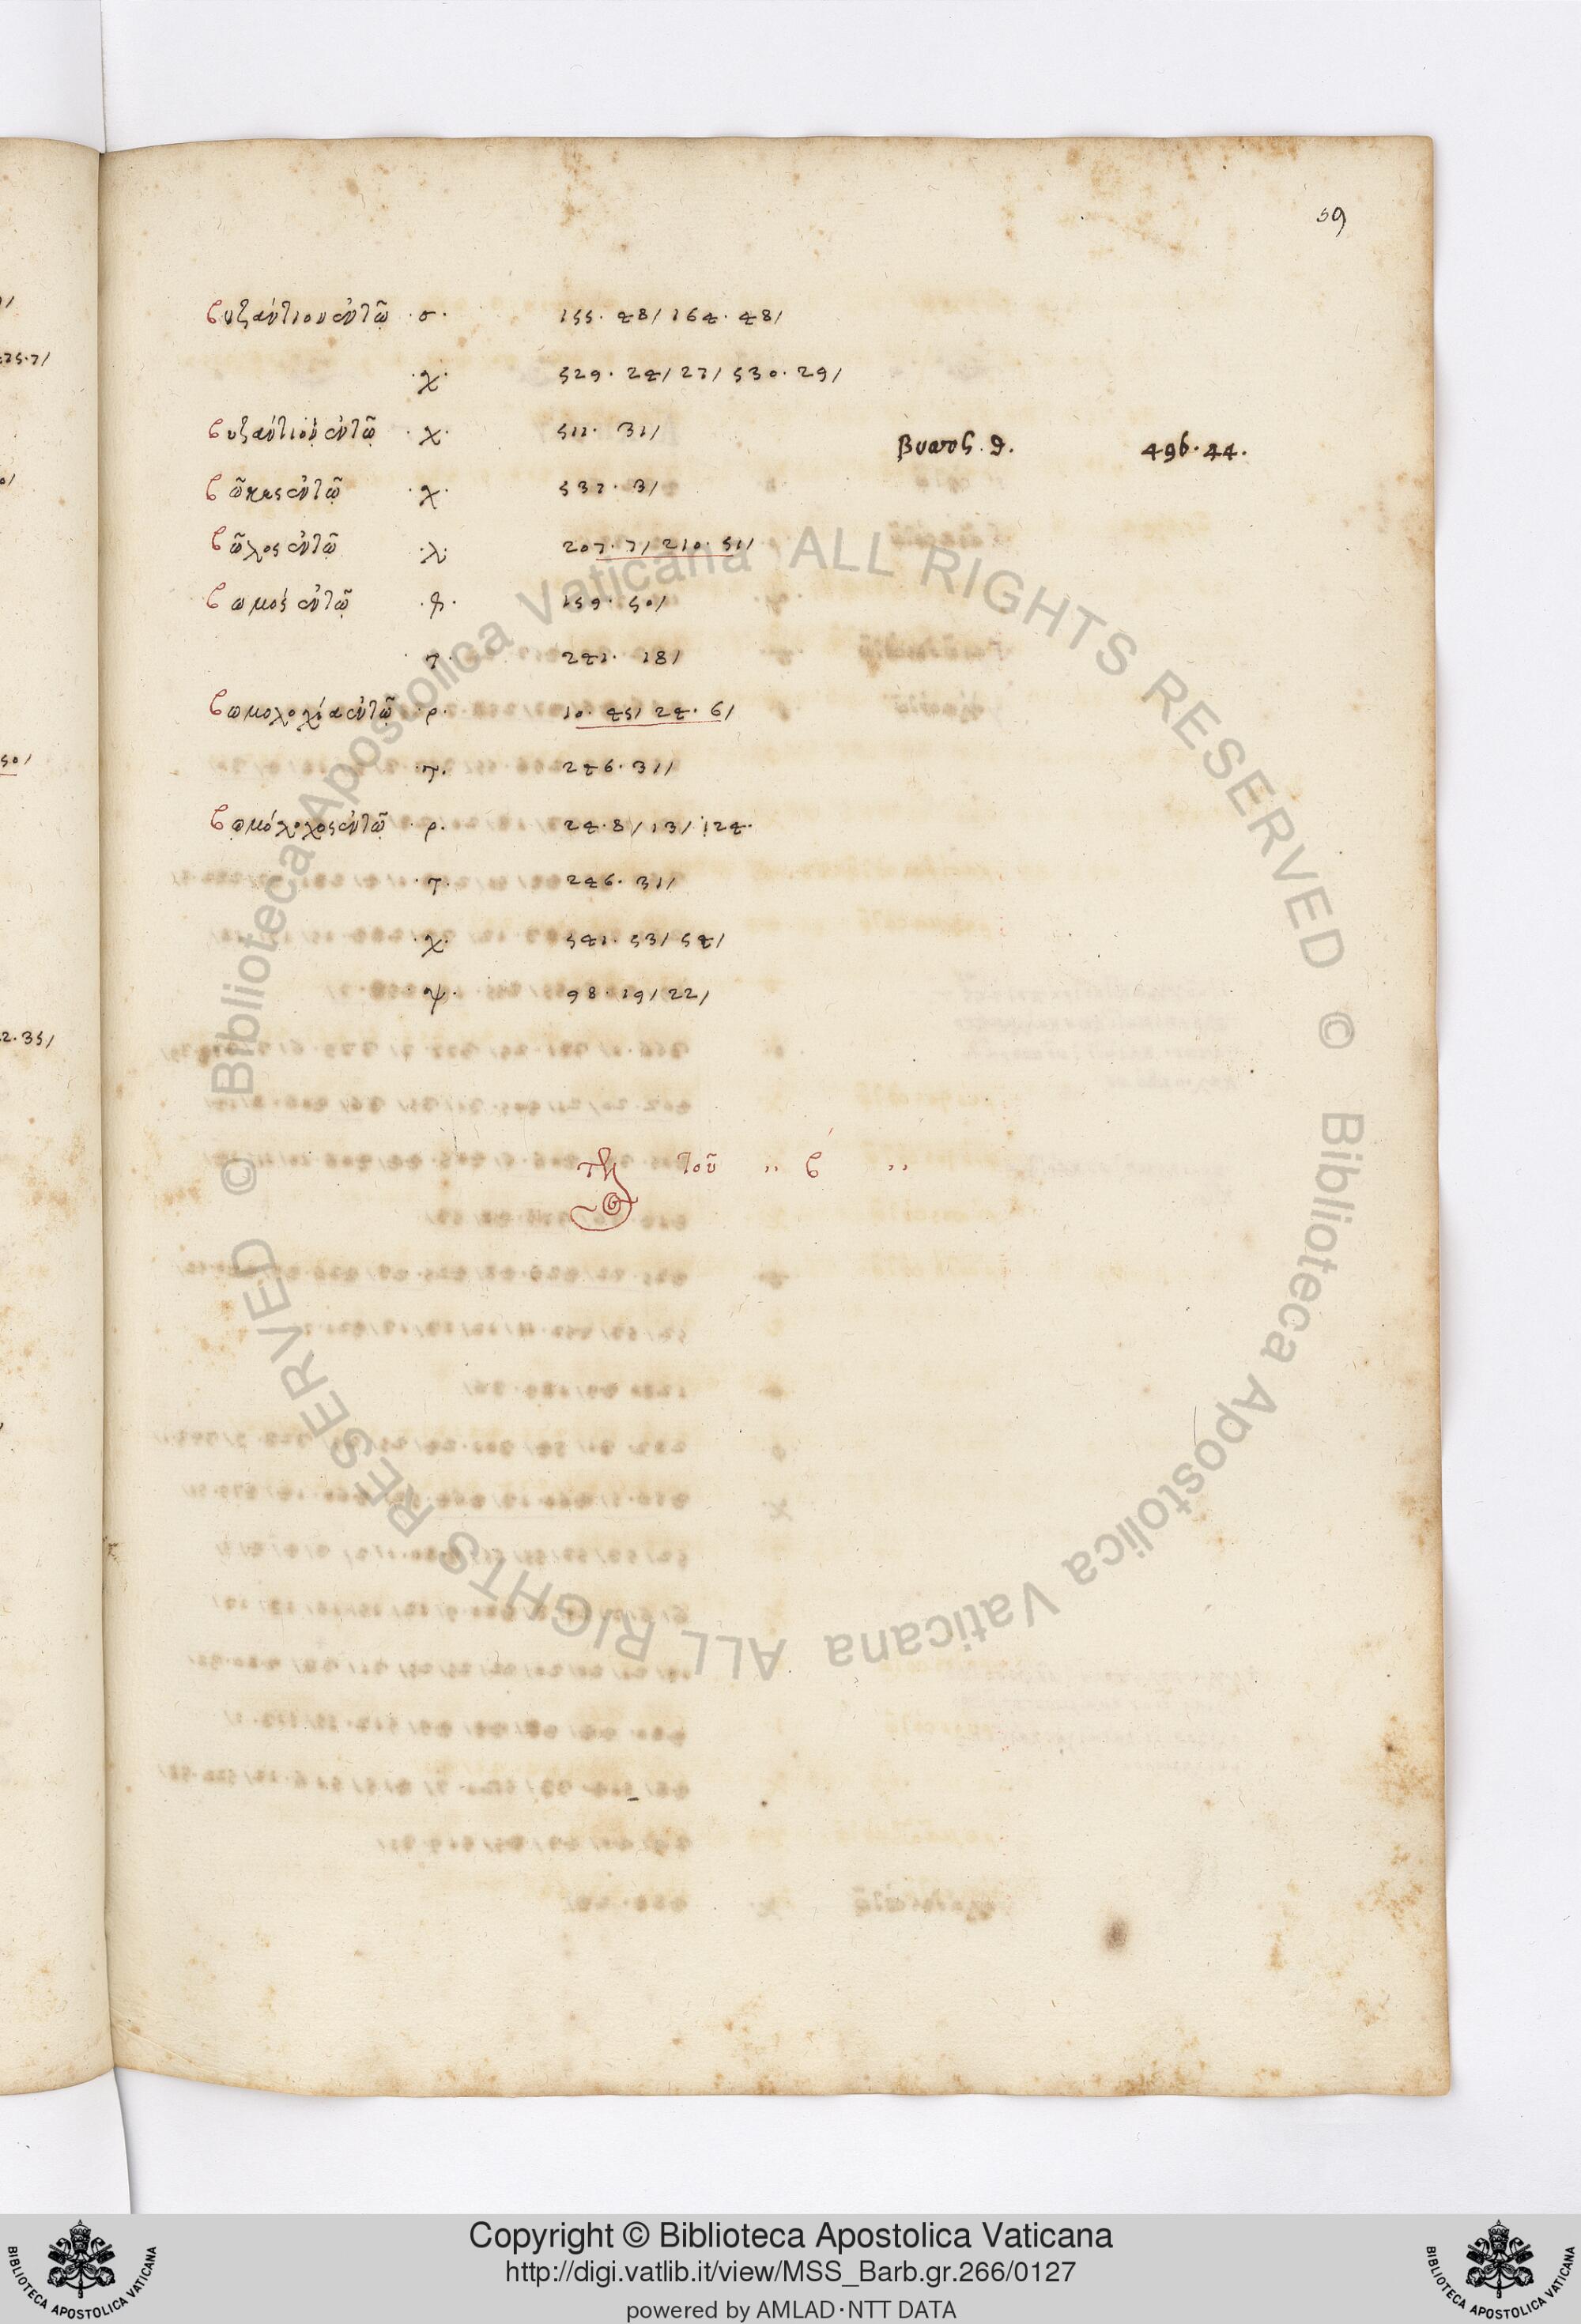 59
βυζάντιον ἐν τῶ · σ · 155 · 48/ 164 · 48/
· χ · 529 · 24/ 27/ 530 · 29/
βυζάντιοι ἐν τῶ · χ · 511 · 31/
βυσσς . θ . 496 · 44 ·
βῶκες ἐν τῶ · χ · 537 · 3/
βῶλος ἐν τῶ · λ · 207 · 7/ 210 · 51/
βωμός ἐν τῶ 159 · 50/
· τ · 241 · 18/
βωμολοχία ἐν τῶ · ρ · 10 · 45/ 24 · 6/
· τ · 246 · 31/
βωμόλοχος ἐν τῶ · ρ · 24 · 8/ 13/ 124 ·
· τ · 246 · 31/
· χ · 541 · 53/ 54/
· ψ · 98 · 19/ 22/
τοῦ ,, β ,,
© Biblioteca Apostolica Vaticana ALL RIGHTS RESERVED
© Biblioteca Apostolica Vaticana ALL RIGHTS RESERVED
Copyright © Biblioteca Apostolica Vaticana
http://digi.vatlib.it/view/MSS_Barb.gr.266/0127
powered by AMLAD·NTT DATA
BIBLIOTECA APOSTOLICA VATICANA
BIBLIOTECA APOSTOLICA VATICANA